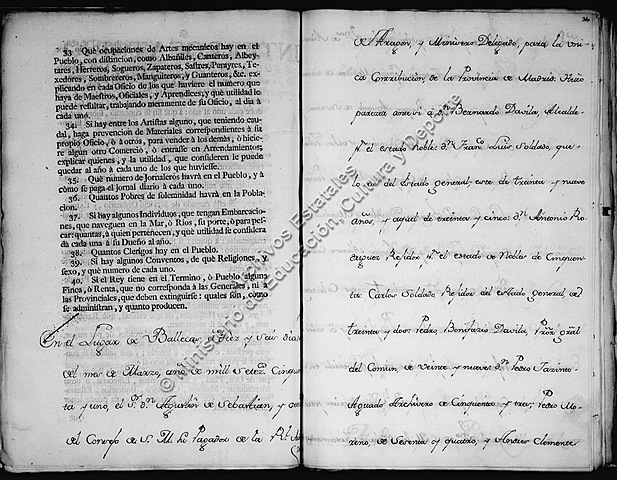 33 Què ocupaciones de Artes mecanicos hay en el
Pueblo, con distincion, como Albañiles, Canteros, Albey-
tares, Herreros, Sogueros, Zapateros, Sastres, Perayres, Te-
xedores, Sombrereros, Manguiteros, y Guanteros, &c. ex-
plicando en cada Oficio de los que huviere el numero que
haya de Maestros, Oficiales, y Aprendices; y què utilidad le
puede resultar, trabajando meramente de su Oficio, al dia à
cada uno.
34. Si hay entre los Artistas alguno, que teniendo cau-
dal, haga prevencion de Materiales correspondientes à su
propio Oficio, ò à otros, para vender à los demàs, ò hicie-
re algun otro Comercio, ò entrasse en Arrendamientos;
explicar quienes, y la utilidad, que consideren le puede
quedar al año à cada uno de los que huviesse.
35. Què numero de Jornaleros havrà en el Pueblo, y à
còmo se paga el jornal diario à cada uno.
36. Quantos Pobres de solemnidad havrà en la Pobla-
cion.
37. Si hay algunos Individuos, que tengan Embarcacio-
nes, que naveguen en la Mar, ò Rios, su porte, ò para pes-
car: quantas, à quien pertenecen, y què utilidad se considera
dà cada una à su Dueño al año.
38. Quantos Clerigos hay en el Pueblo.
39. Si hay algunos Conventos, de què Religiones, y
sexo, y què numero de cada uno.
40. Si el Rey tiene en el Termino, ò Pueblo alguna
Finca, ò Renta, que no corresponda à las Generales, ni à
las Provinciales, que deben extinguirse: quales son, còmo
se administran, y quanto producen.
En el Lugar de Ballecas, a diez y seis dias
del mes de Marzo, año de mil setecs. cinquen
ta y uno, el Sr. dn. Agustin de Sebastian, y
del Consejo de S. M. su Pagador de la Rl.
de Aragon, y Ministro Delegado, para la uni
ca Contribucion, de la Provincia de Madrid. Hizo
parezer ante si a Bernardo Davila, Alcalde
pr. el estado Noble: dn. Franco. Luis Soldado, que
lo es del Estado general, este de treinta y nueve
años, y aquel de treinta y cinco: dn. Antonio Ro
driguez Rexidor pr. el estado de Nobles de Cinquen
ta: Carlos Soldado, Rexidor del estado general de
treinta y dos: Pedro Bonifazio Davila, Pror. gral.
del Comun, de veinte y nueve: dn. Pedro Jazinto
Aguado Archivero de Cinquenta y tres, Pedro Mo
reno, de Sesenta y quatro, y Andres Clemente
© Ministerio de Educación, Cultura y Deporte
Archivos Estatales